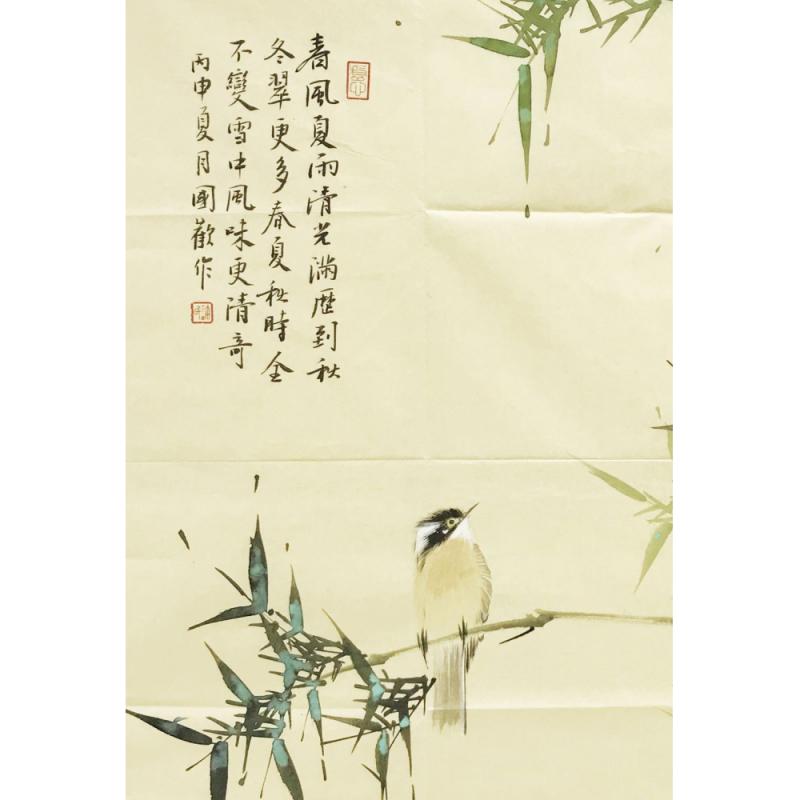 春風夏雨清光滿歷到秋
冬翠更多春夏秋時全
不變雪中風味更清奇
丙申夏月國歡作